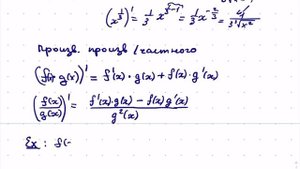 (x^{1/3})' = 1/3 x^{1/3 - 1} = 1/3 x^{-2/3} =
Произв. произв / частного
(f(x) · g(x))' = f'(x) · g(x) + f(x) · g'(x)
(f(x)/g(x))' = (f'(x) · g(x) - f(x) g'(x))/g²(x)
Ex : f(